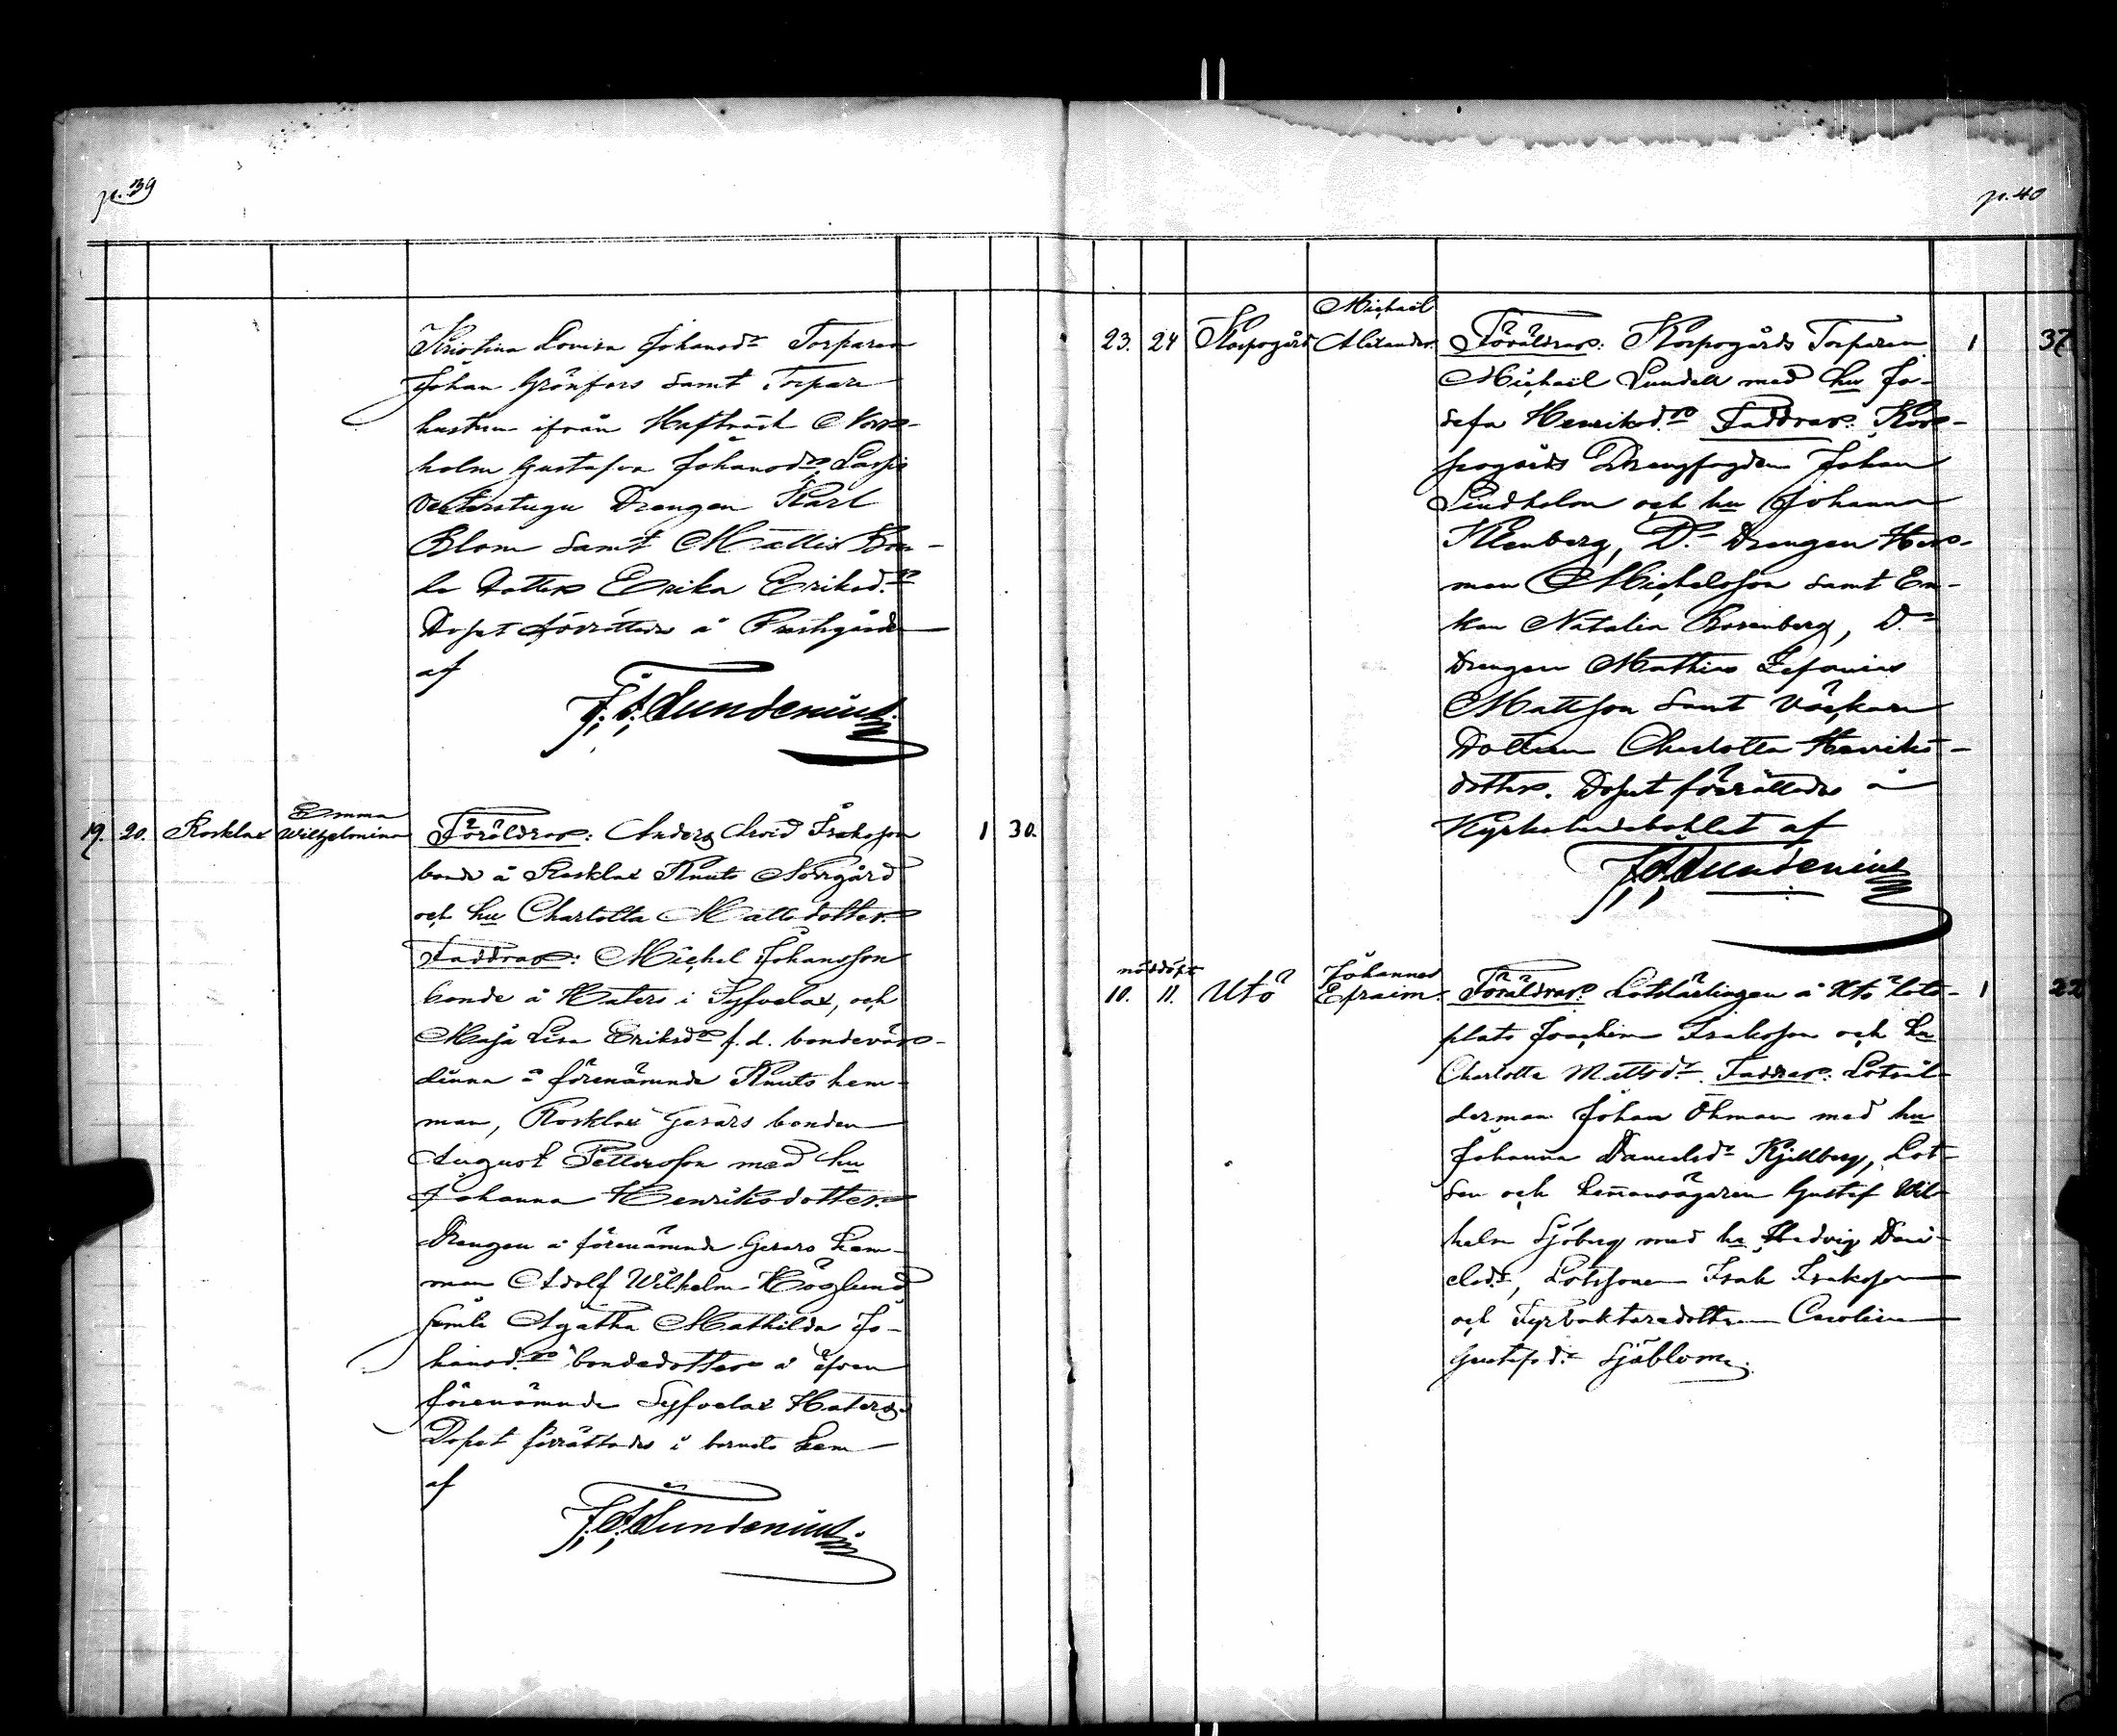 p. 39
Kristina Lovisa Johansdr Torparen
Johan Grönfors samt Torpare
hustrun ifrån Hafträsk Norr-
holm Gustafva Johansdr, Laspis
vesterstugu Drengen Karl
Blom samt Mattis Bon-
de dotter Erika Eriksdr
Dopet förrättades å Prestgården
af
F. A. Sundenius.
19. 20. Rosklax Emma Wilhelmina
Föräldrar: Anders Arvid Isaksson 1 30.
bonde å Rosklax Knuts Norrgård
och hu Charlotta Mattsdotter.
Faddrar: Michel Johansson
bonde å Haters i Sysvelax, och
Maja Lisa Eriksdr f.d. bondevär-
dinna å förenämnde Knuts hem-
man, Rosklax Gerars bonden
August Pettersson med hu
Johanna Henriksdotter.
Drengen å förenämnde Gerars hem-
man Adolf Wilhelm Höglund
samt Agatha Mathilda Jo-
hansdr bondedotter å äfven
förenämnde Sysvelax Haters.
Dopet förrättades i barnets hem
af
F. A. Sundenius
p. 40
23. 24 Korpogård Michaël Alexander.
Föräldrar: Korpogårds Torparen 1 37
Michaël Lundell med hu Jo-
sefa Henriksdr Faddrar: Kor-
pogårds Drengfogden Johan
Lindholm och hu Johanna
Klenberg, Do Drengen Her-
man Michelsson samt En-
kan Natalia Rosenberg, Do
Drengen Mathias Zefanias
Mattsson samt Väskare
Dottern Charlotta Henriks-
dotter. Dopet förrättades å
Kyrkolandsbohlet af
F. A. Sundenius
nöddöpt
10. 11. Utö Johannes Efraim.
Föräldrar: Lotslärlingen å Utö lots- 1 22
plats Joachim Isaksson och hu
Charlotta Mattsdr. Faddrar: Lotsål-
derman Johan Öhman med hu
Johanna Danielsdr Kjellberg, Lot-
sen och hemansägaren Gustaf Wil-
helm Sjöberg med hu Hedvig Dani-
elsdr, Lotssonen Isak Isaksson
och Fyrvaktaredottren Carolina
Gustafsdr Sjöblom.